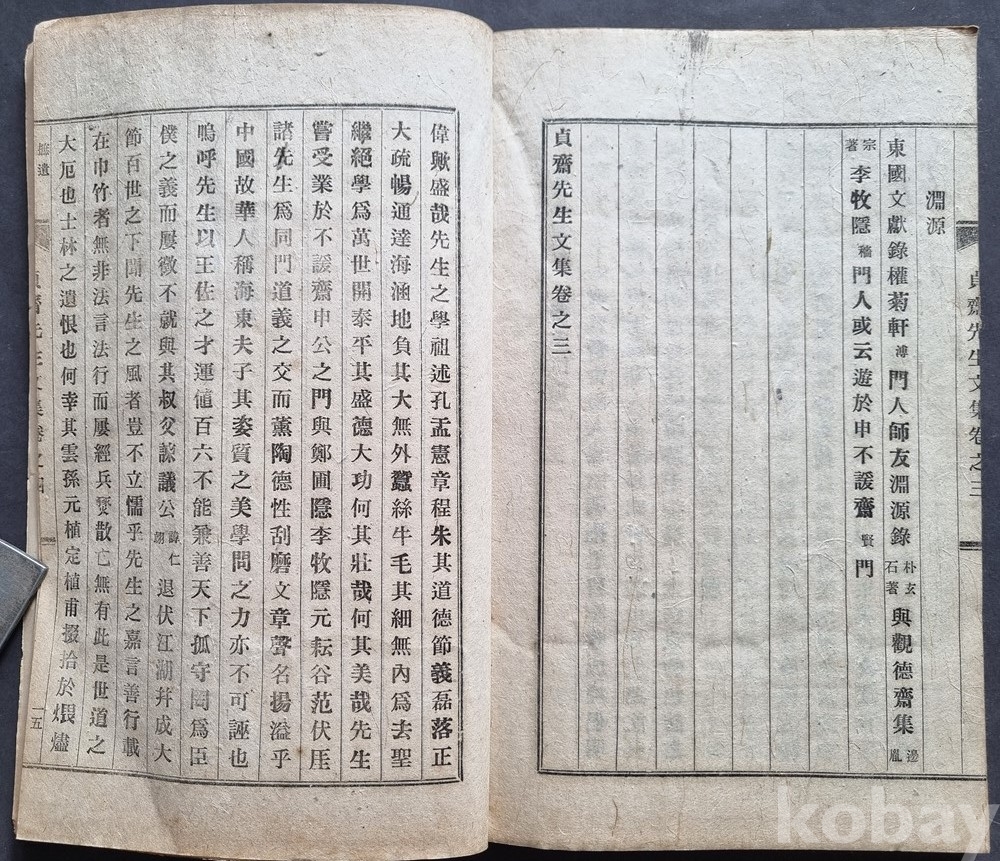 貞齋先生文集卷之三
淵源
東國文獻錄權菊軒溥門人師友淵源錄朴玄石著與觀德齋集邊胤
宗著李牧隱穡門人或云遊於申不諼齋賢門
貞齋先生文集卷之三
偉歟盛哉先生之學祖述孔孟憲章程朱其道德節義磊落正
大疏暢通達海涵地負其大無外蠶絲牛毛其細無內爲去聖
繼絕學爲萬世開泰平其盛德大功何其壯哉何其美哉先生
嘗受業於不諼齋申公之門與鄭圃隱李牧隱元耘谷范伏厓
諸先生爲同門道義之交而薰陶德性刮磨文章聲名揚溢乎
中國故華人稱海東夫子其姿質之美學問之力亦不可誣也
嗚呼先生以王佐之才運値百六不能兼善天下孤守罔爲臣
僕之義而屢徵不就與其叔父諒議公諱仁翊退伏江湖幷成大
節百世之下聞先生之風者豈不立懦乎先生之嘉言善行載
在巾竹者無非法言法行而屢經兵燹散亡無有此是世道之
大厄也士林之遺恨也何幸其雲孫元植定植甫掇拾於煨燼
拾遺
貞齋先生文集卷之四
一五
kobay